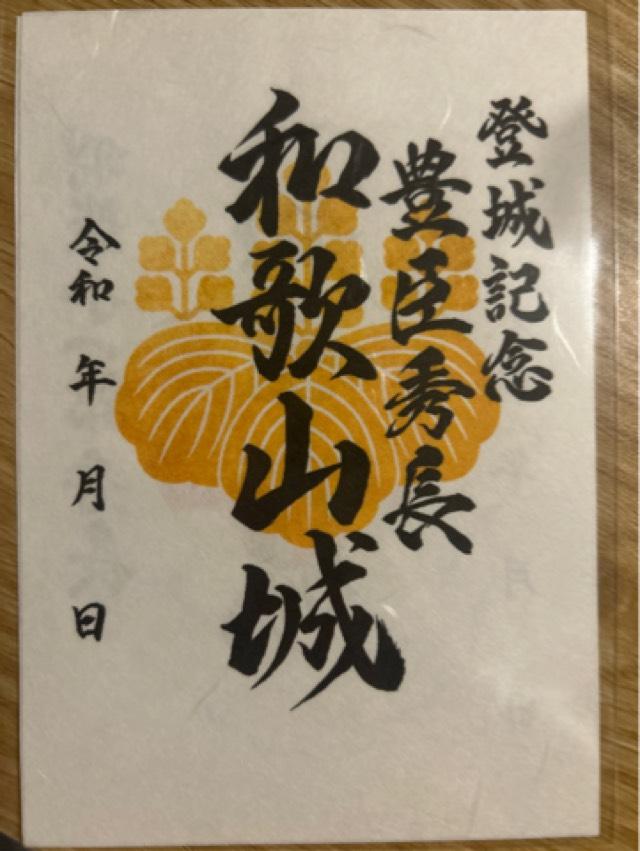 登城記念
豊臣秀長
和歌山城
令和 年 月 日